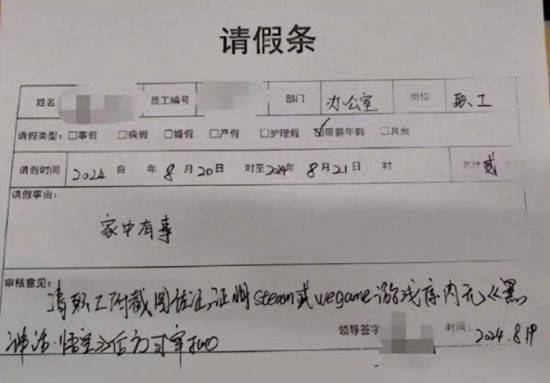 请假条
姓名 员工编号 部门 办公室 岗位 职工
请假类型: □事假 □病假 □婚假 □产假 □护理假 ☑带薪年假 □其他
请假时间 2024 自 年 8 月 20 日 时至 2024年 8 月 21 日 时 共计 贰
请假事由:
家中有事
审核意见:
请职工附截图佐证,证明steam或wegame游戏库内无《黑
神话·悟空》后方可审批
领导签字 时间: 2024.8.19